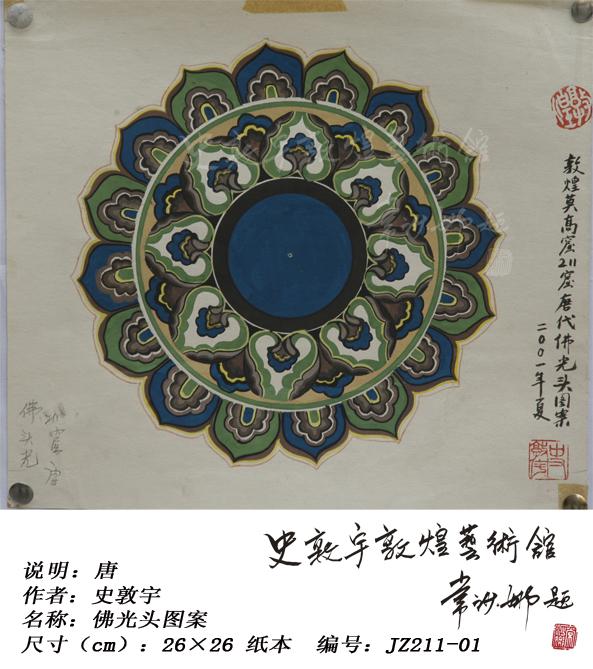 敦煌莫高窟211窟唐代佛光头图案
二〇〇一年夏
211窟 唐
佛头光
史敦宇敦煌藝術館
常沙娜题
说明：唐
作者：史敦宇
名称：佛光头图案
尺寸（cm）：26×26 纸本 编号：JZ211-01